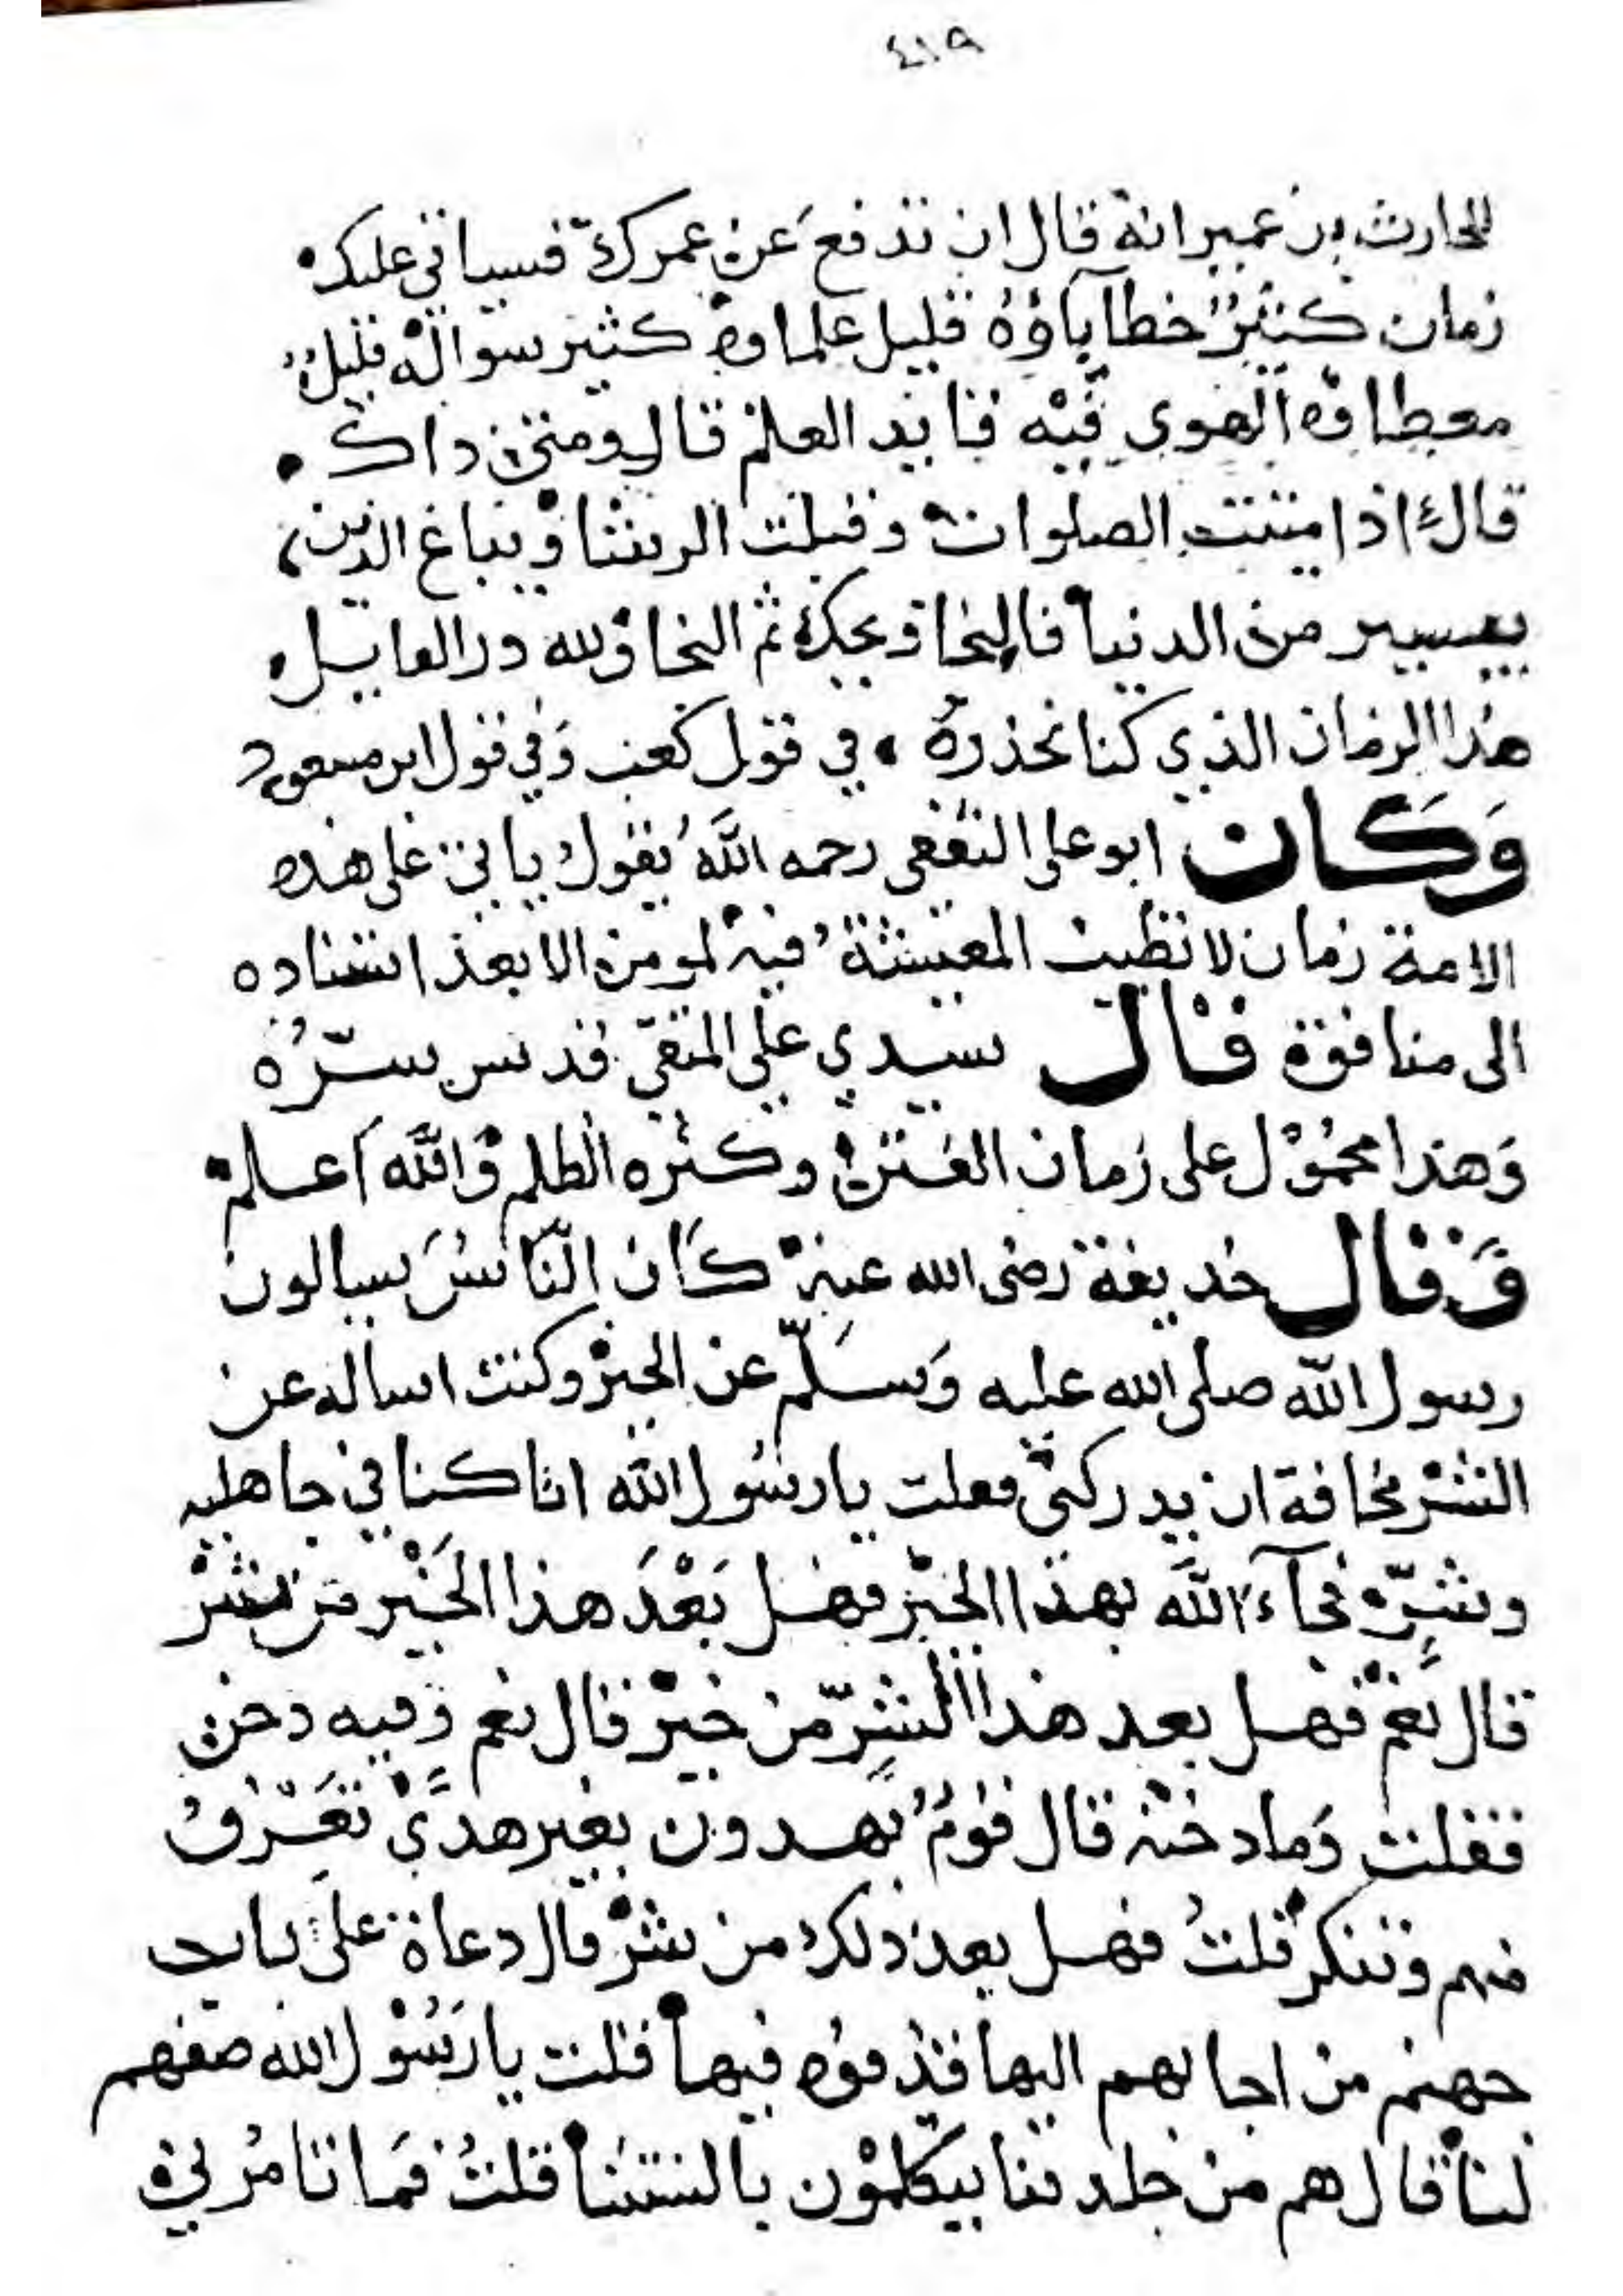 ٤١٩
الحارث بن عمير انه قال ان تدفع عن عمرك فسياتي عليك
زمان كثير خطاباؤه قليل علماوه كثير سواله قليل
معطاوه الهوي فيه قايد العلم قال ومتى ذاك
قال اذا ميتت الصلوات وقبلت الرشا ويباع الدين
بيسير من الدنيا فالنجا ويحك ثم النجا ولله در القايل
هذا الزمان الذي كنا نحذره في قول كعب وفي قول ابن مسعود
وكان ابو علي الثقفي رحمه الله يقول ياتي على هذه
الامة زمان لا تطيب المعيشة فيه لمومن الا بعد استناده
الى منافق قال سيدي علي المتقي قدس سره
وهذا محمول على زمان الفتن وكثره الظلم والله اعلم
وقال حذيفة رضى الله عنه كان الناس يسالون
رسول الله صلى الله عليه وسلم عن الخير وكنت اساله عن
الشر مخافة ان يدركني فقلت يا رسول الله انا كنا في جاهليه
وشر فجآء الله بهذا الخير فهل بعد هذا الخير من شر
قال نعم فهل بعد هذا الشر من خير قال نعم وفيه دخن
فقلت وما دخنه قال قوم يهدون بغير هدي تعرف
منهم وتنكر قلت فهل بعد ذلك من شر قال دعاة على باب
جهنم من اجابهم اليها قذفوه فيها قلت يا رسول الله صفهم
لنا قال هم من جلدتنا يتكلمون بالسنتنا قلت فما تامرني